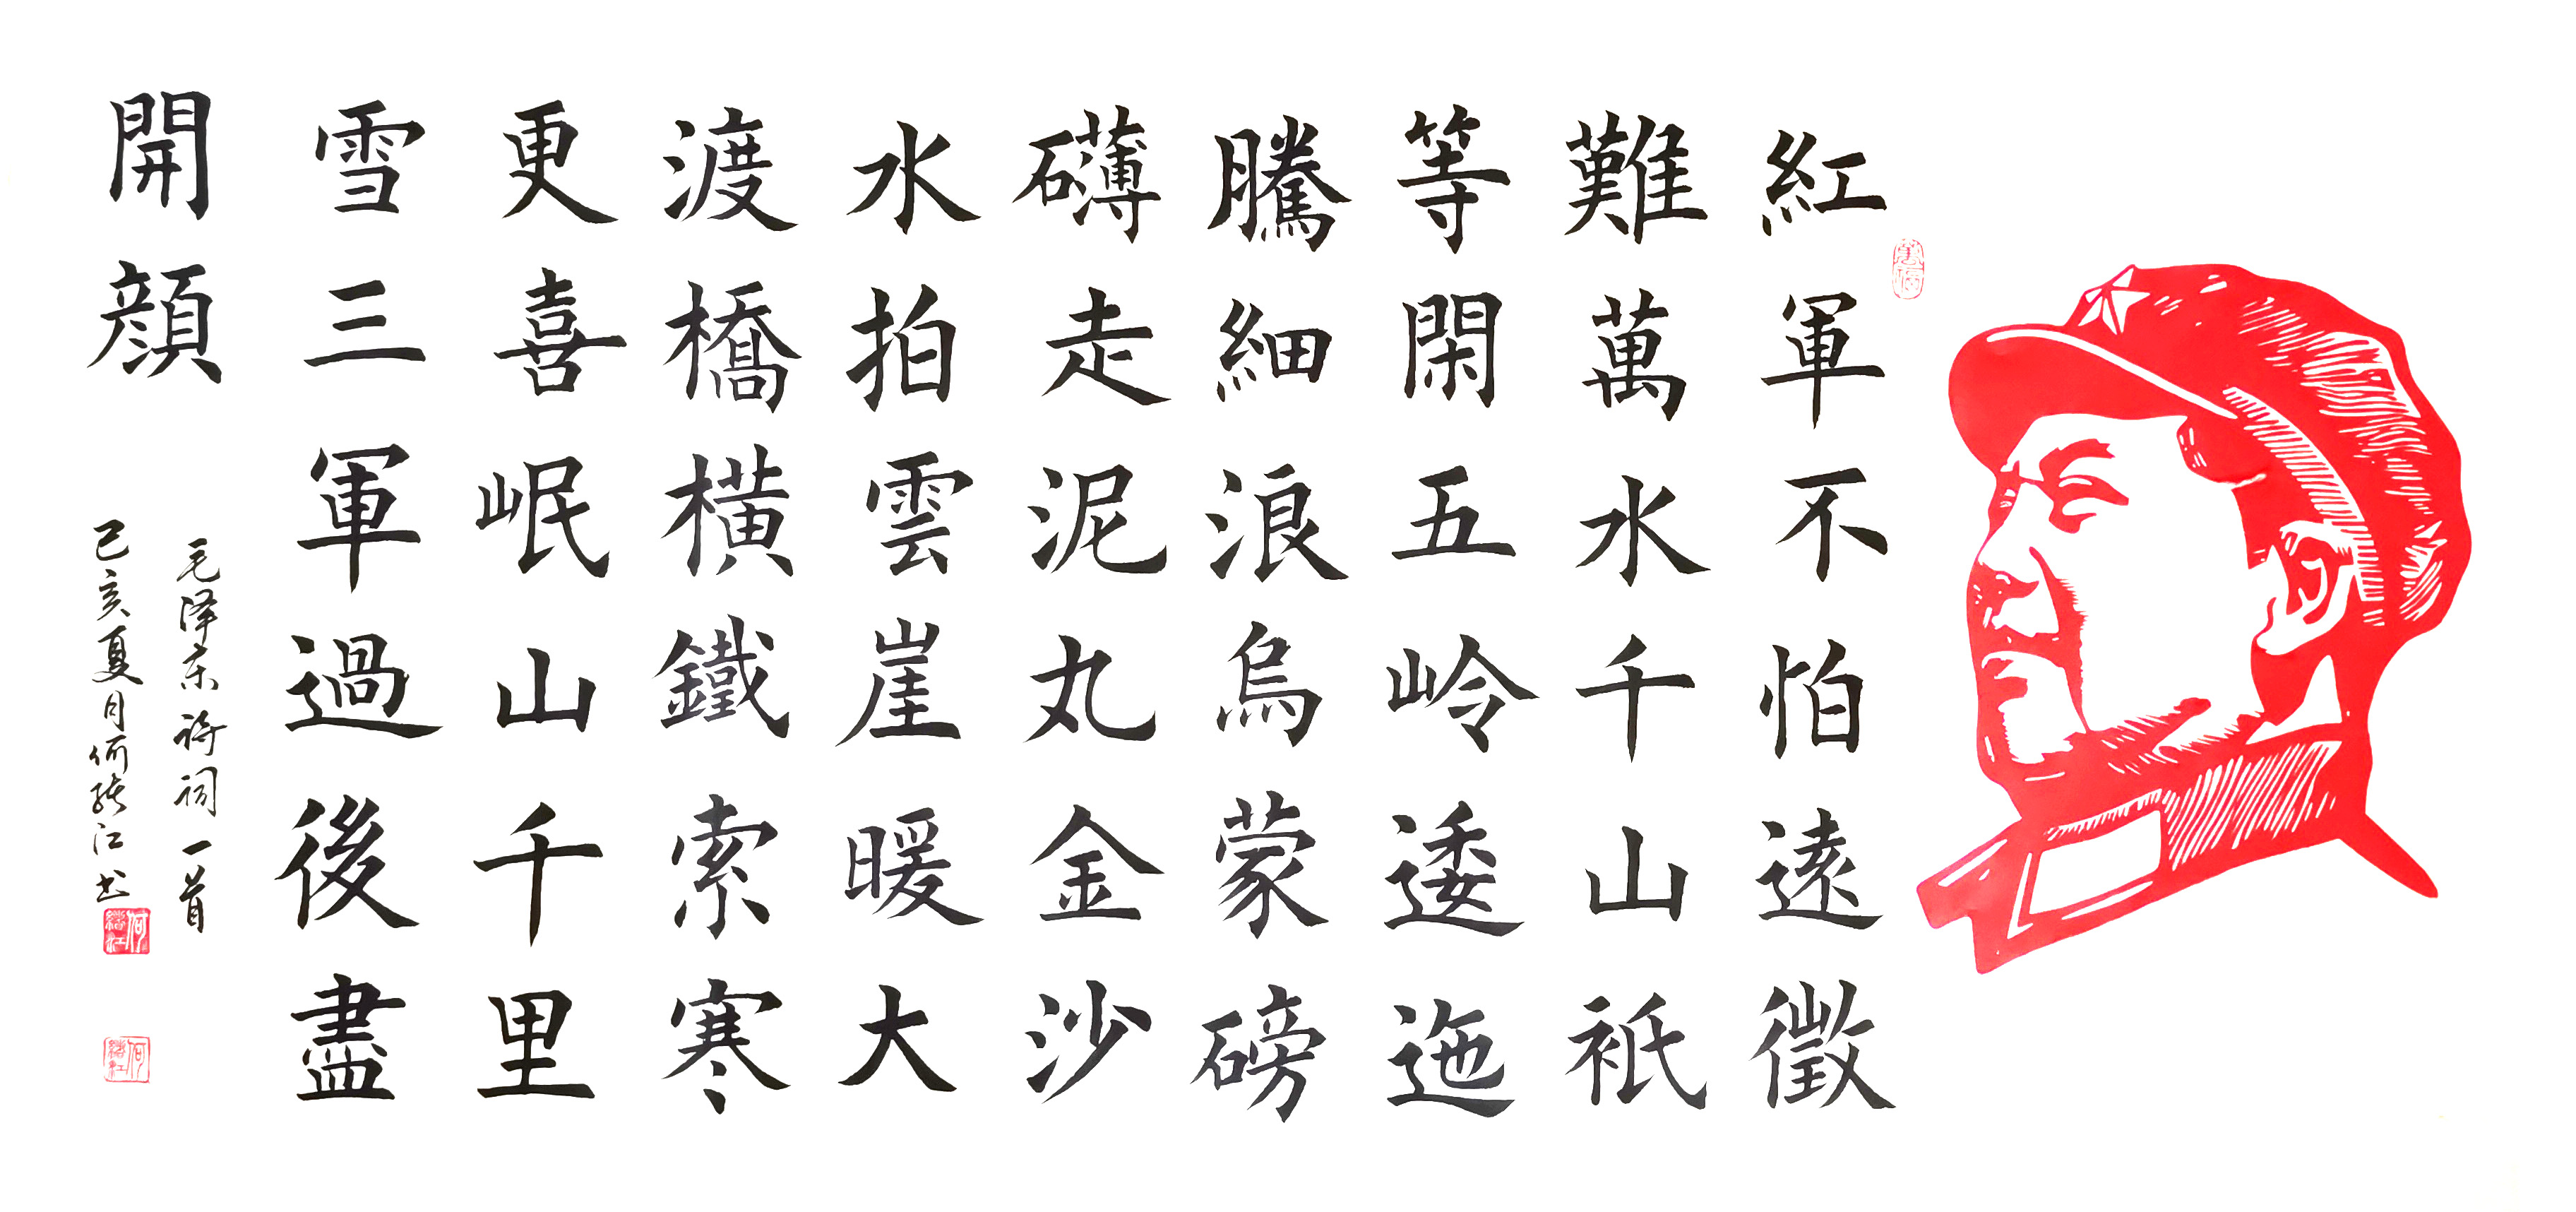 紅軍不怕遠徵
難萬水千山衹
等閑五岭逶迤
騰細浪烏蒙磅
礴走泥丸金沙
水拍雲崖暖大
渡橋橫鐵索寒
更喜岷山千里
雪三軍過後盡
開顏
毛泽东诗词一首
己亥夏月何继江书
何継江